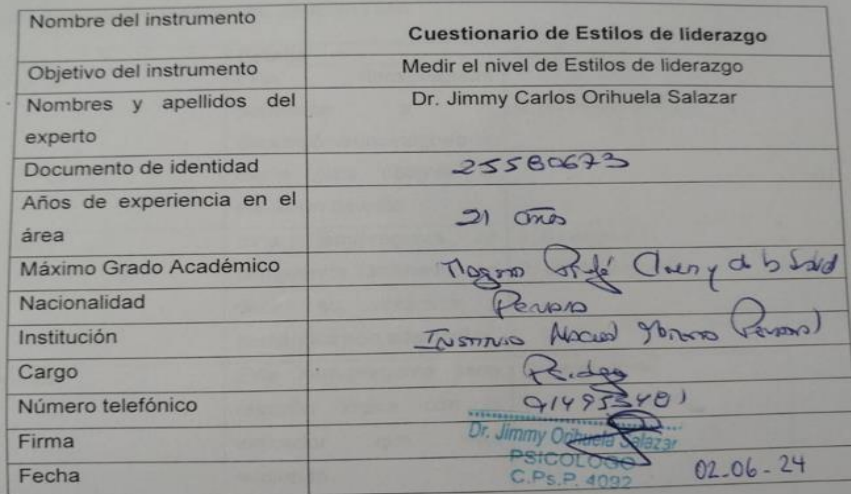 Nombre del instrumento
Cuestionario de Estilos de liderazgo
Objetivo del instrumento
Medir el nivel de Estilos de liderazgo
Nombres y apellidos del
experto
Dr. Jimmy Carlos Orihuela Salazar
Documento de identidad
25580673
Años de experiencia en el
área
21 años
Máximo Grado Académico
Nacionalidad
Peruano
Institución
Cargo
Psicólogo
Número telefónico
Firma
Dr. Jimmy Orihuela Salazar
PSICOLOGO
C.Ps.P. 4092
Fecha
02-06-24